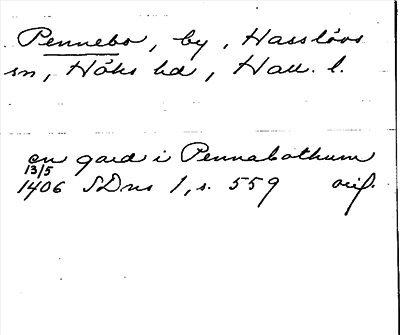 Pennebo, by, Hasslövs
sn, Höks hd, Hall. l.
en gard i Pennabothum
13/5
1406 SDns 1, s. 559 orig.